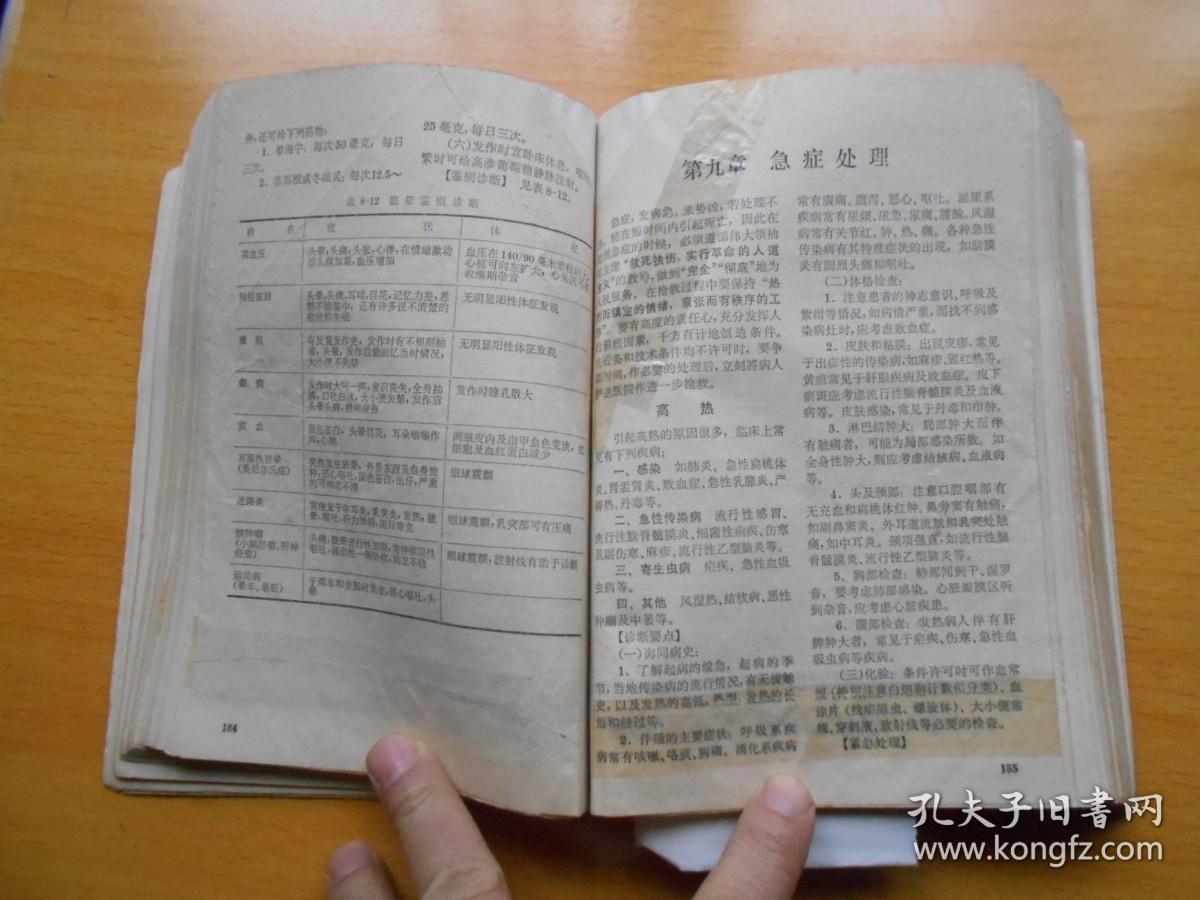 外，还可给下列药物：
1. 晕海宁：每次50毫克，每日
三次。
2. 非那根或冬眠灵：每次12.5～
25毫克，每日三次。
(六)发作时宜卧床休息，呕吐
繁时可给高渗葡萄糖静脉注射。
【鉴别诊断】 见表8-12。
表 8-12 眩晕鉴别诊断
病 名 症 状 体 征
高血压
头晕，头痛，头胀，心悸，在情绪激动
后头痛加重，血压增加
血压在140/90毫米汞柱以上
心脏可向左扩大，心尖区可有
收缩期杂音
神经衰弱
头晕，头痛，耳鸣，目花，记忆力差，思
想不能集中，还有许多说不清楚的
症状和失眠
无明显阳性体征发现
癔病
有反复发作史，发作时有不规则抽
搐，头晕，发作后能回忆当时情况，
大小便不失禁
无明显阳性体征发现
癫痫
发作时大叫一声，意识丧失，全身抽
搐，口吐白沫，大小便失禁，发作后
头晕头痛，精神疲惫
发作时瞳孔散大
贫血
面色苍白，头晕目花，耳朵嗡嗡作
声，心跳
两眼皮内及指甲血色变淡，红
细胞及血红蛋白减少
耳原性眩晕
(美尼尔氏症)
突然发生眩晕，外界东西及自身旋
转，恶心呕吐，面色苍白，出汗，严重
的耳鸣听不清
眼球震颤
迷路炎
常继发于中耳炎，乳突炎，发热，眩
晕，呕吐，听力障碍，闭目难立
眼球震颤，乳突部可有压痛
脑肿瘤
(小脑肿瘤，听神
经瘤)
头痛，眩晕进行性加剧，常伴喷射性
呕吐，强迫性一侧卧位，站立不稳
眼球震颤，放射线有助于诊断
运动病
(晕车、晕船)
于乘车和坐船时发生，恶心呕吐，头
晕
184
第九章 急症处理
急症，发病急，来势凶，若处理不
能在短时间内引起死亡，因此在
急症的时候，必须遵循伟大领袖
主席“救死扶伤，实行革命的人道
主义”的教导，做到“完全”“彻底”地为
人民服务，在抢救过程中要保持“热
烈而镇定的情绪，紧张而有秩序的工
作”。要有高度的责任心，充分发挥人
的积极因素，千方百计地创造条件。
设备和技术条件均不许可时，要争
取时间，作必要的处理后，立刻将病人
护送医院作进一步抢救。
高 热
引起高热的原因很多，临床上常
见有下列疾病：
一、感染 如肺炎、急性扁桃体
炎、肾盂肾炎、败血症、急性乳腺炎、产
褥热、丹毒等。
二、急性传染病 流行性感冒、
流行性脑脊髓膜炎、细菌性痢疾、伤寒
及副伤寒、麻疹、流行性乙型脑炎等。
三、寄生虫病 疟疾、急性血吸
虫病等。
四、其他 风湿热、结核病、恶性
肿瘤及中暑等。
【诊断要点】
(一)询问病史：
1. 了解起病的缓急，起病的季
节，当地传染病的流行情况，有无接触
史，以及发热的高低，热型，发热的长
短和经过等。
2. 伴随的主要症状：呼吸系疾
病常有咳嗽、咯痰、胸痛。消化系疾病
常有腹痛，腹泻，恶心，呕吐。泌尿系
疾病常有尿频、尿急、尿痛，腰酸。风湿
病常有关节红、肿、热、痛。各种急性
传染病有其特殊症状的出现，如脑膜
炎有剧烈头痛和呕吐。
(二)体格检查：
1. 注意患者的神志意识、呼吸及
紫绀等情况，如病情严重，而找不到感
染病灶时，应考虑败血症。
2. 皮肤和粘膜：出现皮疹，常见
于出疹性的传染病，如麻疹、猩红热等。
黄疸常见于肝胆疾病及败血症。皮下
瘀斑应考虑流行性脑脊髓膜炎及血液
病等。皮肤感染，常见于丹毒和疖肿。
3. 淋巴结肿大：局部肿大而伴
有触痛者，可能为局部感染所致。如
全身性肿大，则应考虑结核病、血液病
等。
4. 头及颈部：注意口腔咽部有
无充血和扁桃体红肿。鼻旁窦有触痛，
如副鼻窦炎。外耳道流脓和乳突处触
痛，如中耳炎。颈项强直，如流行性脑
脊髓膜炎、流行性乙型脑炎等。
5. 胸部检查：肺部闻到干、湿罗
音，要考虑肺部感染。心脏瓣膜区听
到杂音，应考虑心脏疾患。
6. 腹部检查：发热病人伴有肝
脾肿大者，常见于疟疾、伤寒、急性血
吸虫病等疾病。
(三)化验：条件许可时可作血常
规（特别注意白细胞计数和分类）、血
涂片（找疟原虫、螺旋体）、大小便常
规，穿刺液，放射线等必要的检查。
【紧急处理】
185
孔夫子旧书网
www.kongfz.com